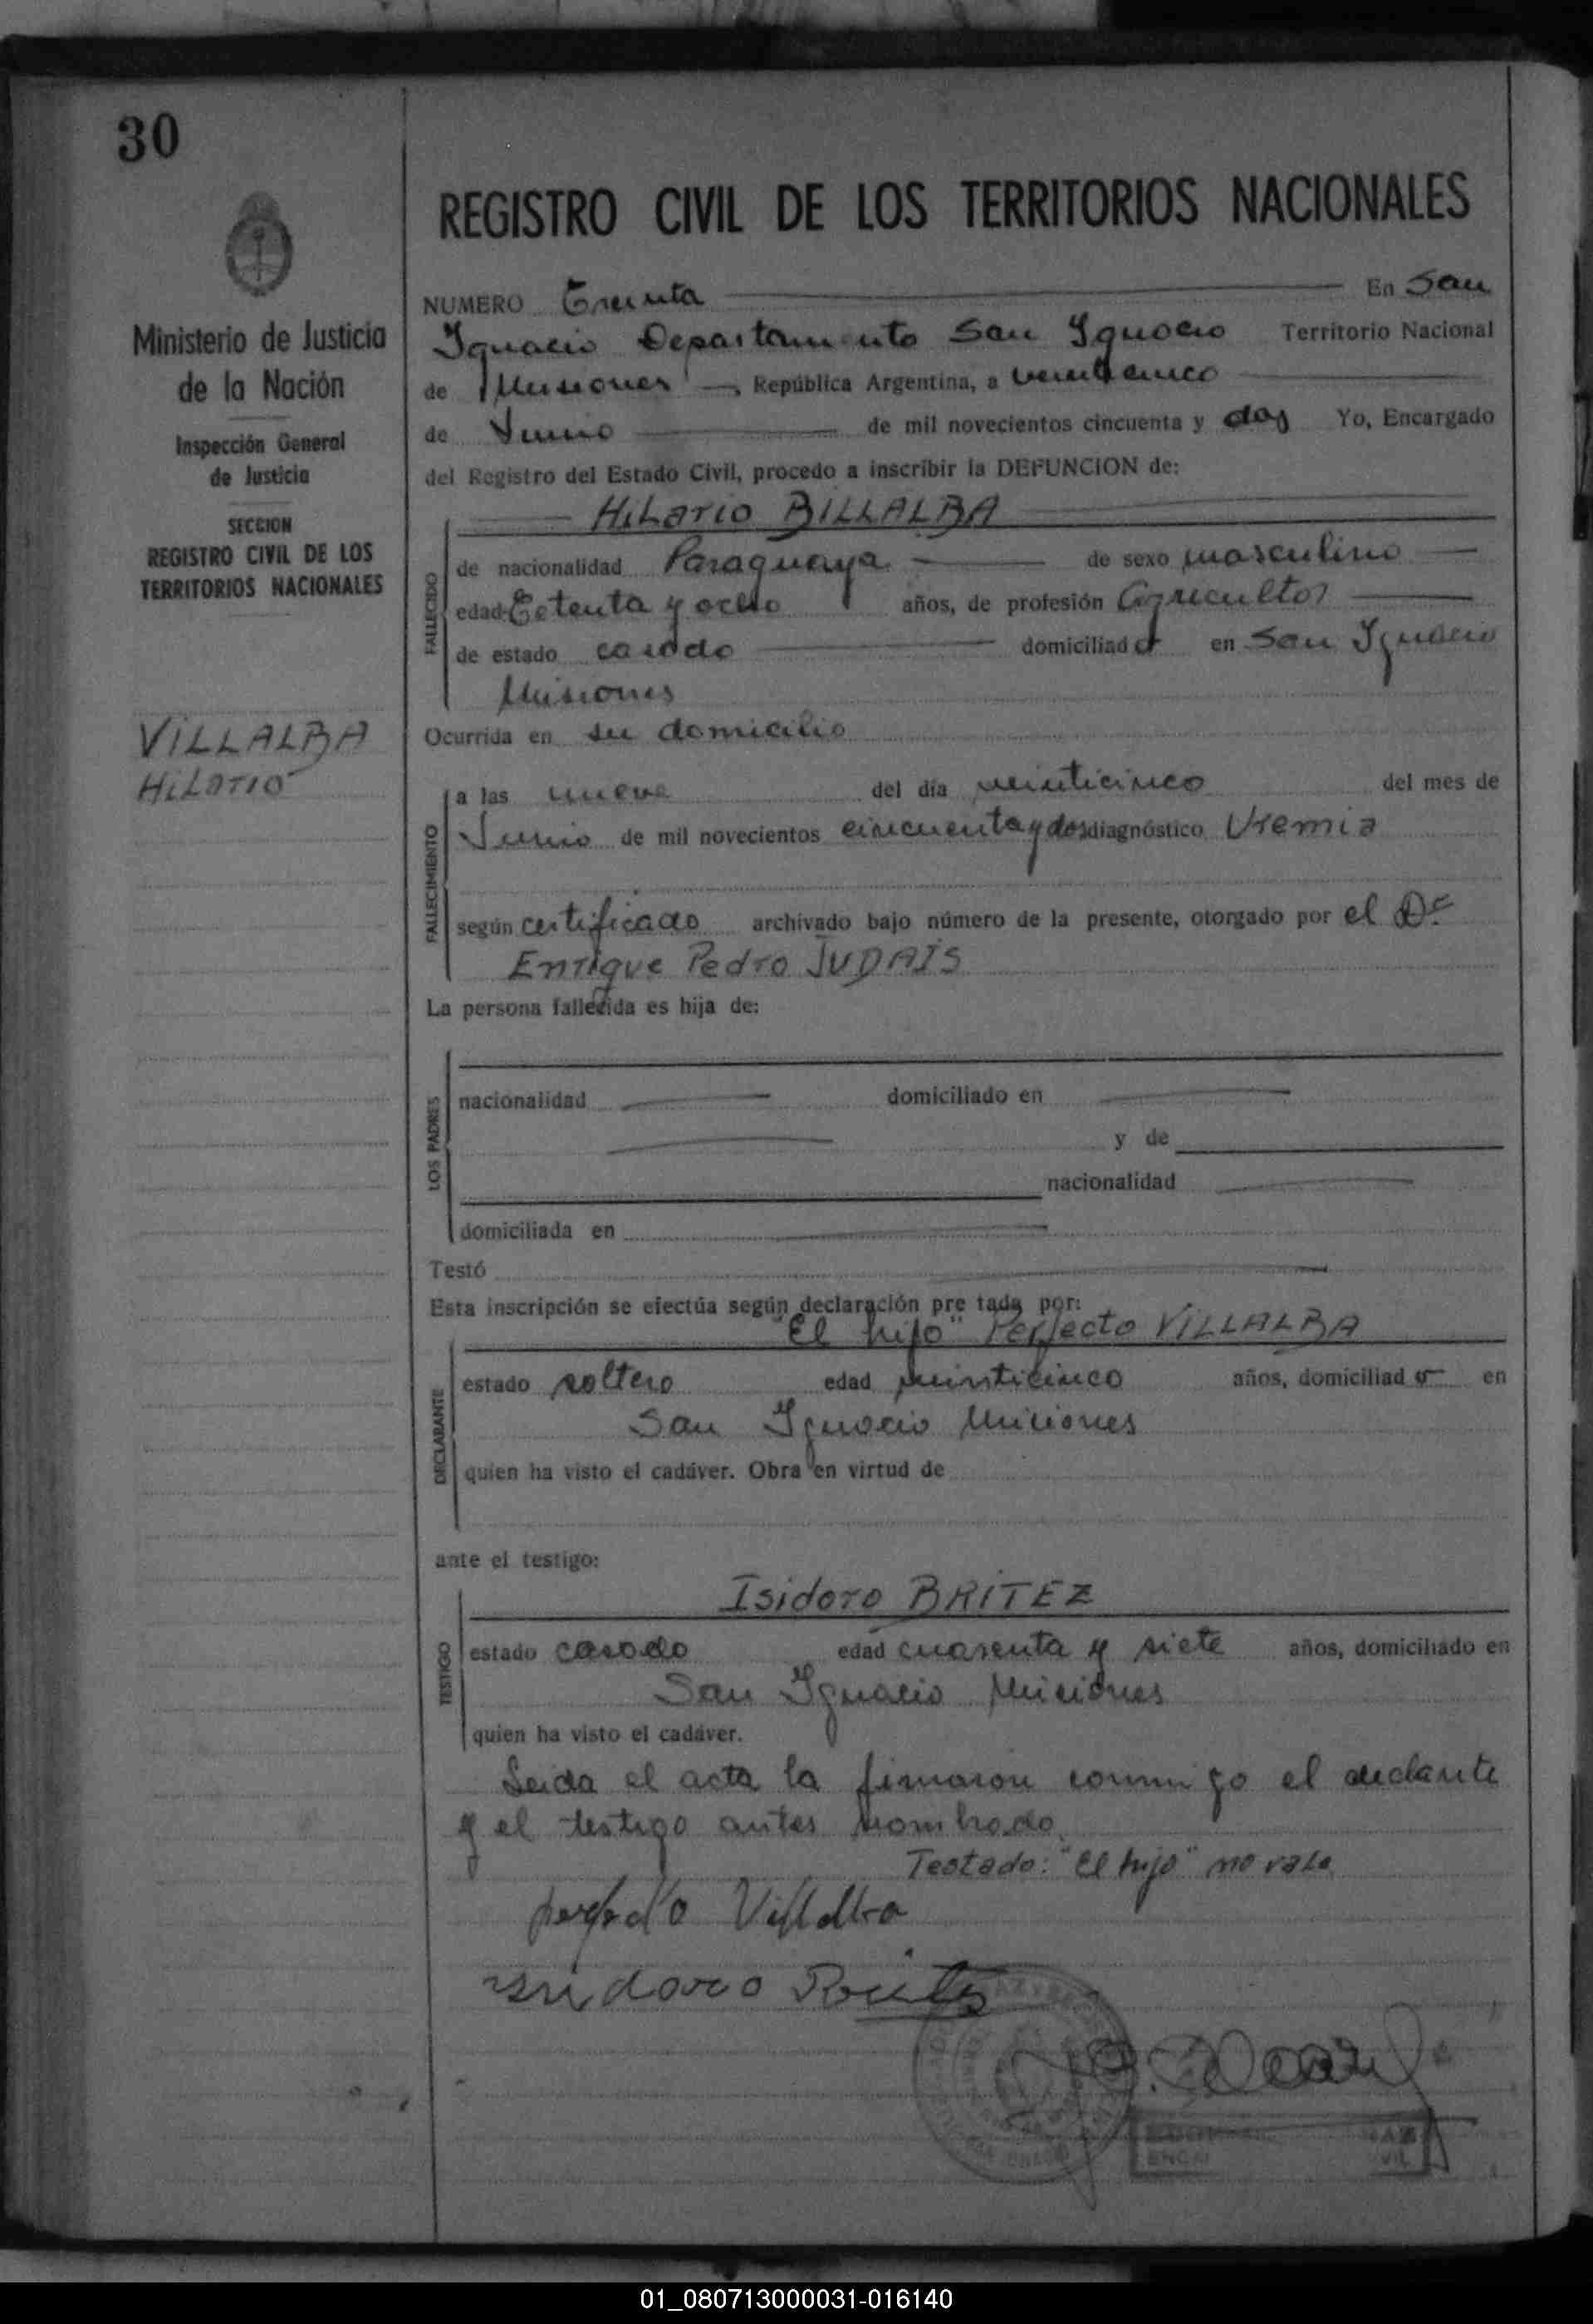 30
REGISTRO CIVIL DE LOS TERRITORIOS NACIONALES
Ministerio de Justicia
de la Nación
Inspección General
de Justicia
SECCION
REGISTRO CIVIL DE LOS
TERRITORIOS NACIONALES
VILLALBA
Hilario
NUMERO Treinta En San
Ignacio Departamento San Ignacio Territorio Nacional
de Misiones, República Argentina, a veinticinco
de Junio de mil novecientos cincuenta y dos Yo, Encargado
del Registro del Estado Civil, procedo a inscribir la DEFUNCION de:
Hilario BILLALBA
FALLECIDO
de nacionalidad Paraguaya de sexo masculino
edad Setenta y ocho años, de profesión Agricultor
de estado casado domiciliado en San Ignacio
Misiones
Ocurrida en su domicilio
FALLECIMIENTO
a las nueve del día veinticinco del mes de
Junio de mil novecientos cincuenta y dos diagnóstico Uremia
según certificado archivado bajo número de la presente, otorgado por el Dr.
Enrique Pedro JUDAIS
La persona fallecida es hija de:
LOS PADRES
nacionalidad domiciliado en
y de
nacionalidad
domiciliada en
Testó
Esta inscripción se efectúa según declaración pre tada por:
"El hijo" Perfecto VILLALBA
DECLARANTE
estado soltero edad veinticinco años, domiciliado en
San Ignacio Misiones
quien ha visto el cadáver. Obra en virtud de
ante el testigo:
Isidoro BRITEZ
TESTIGO
estado casado edad cuarenta y siete años, domiciliado en
San Ignacio Misiones
quien ha visto el cadáver.
Leida el acta la firmaron conmigo el declante
y el testigo antes nombrado
Testado: "El hijo" no vale
perfecto Villalba
01_080713000031-016140